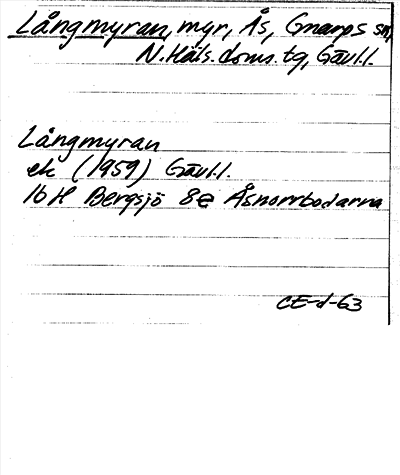 Långmyran, myr, Ås, Gnarps sn,
N.Häls.doms.tg, Gävl.l.
Långmyran
ek (1959) Gävl.l.
16H Bergsjö 8e Åsnorrbodarna
CE-d-63